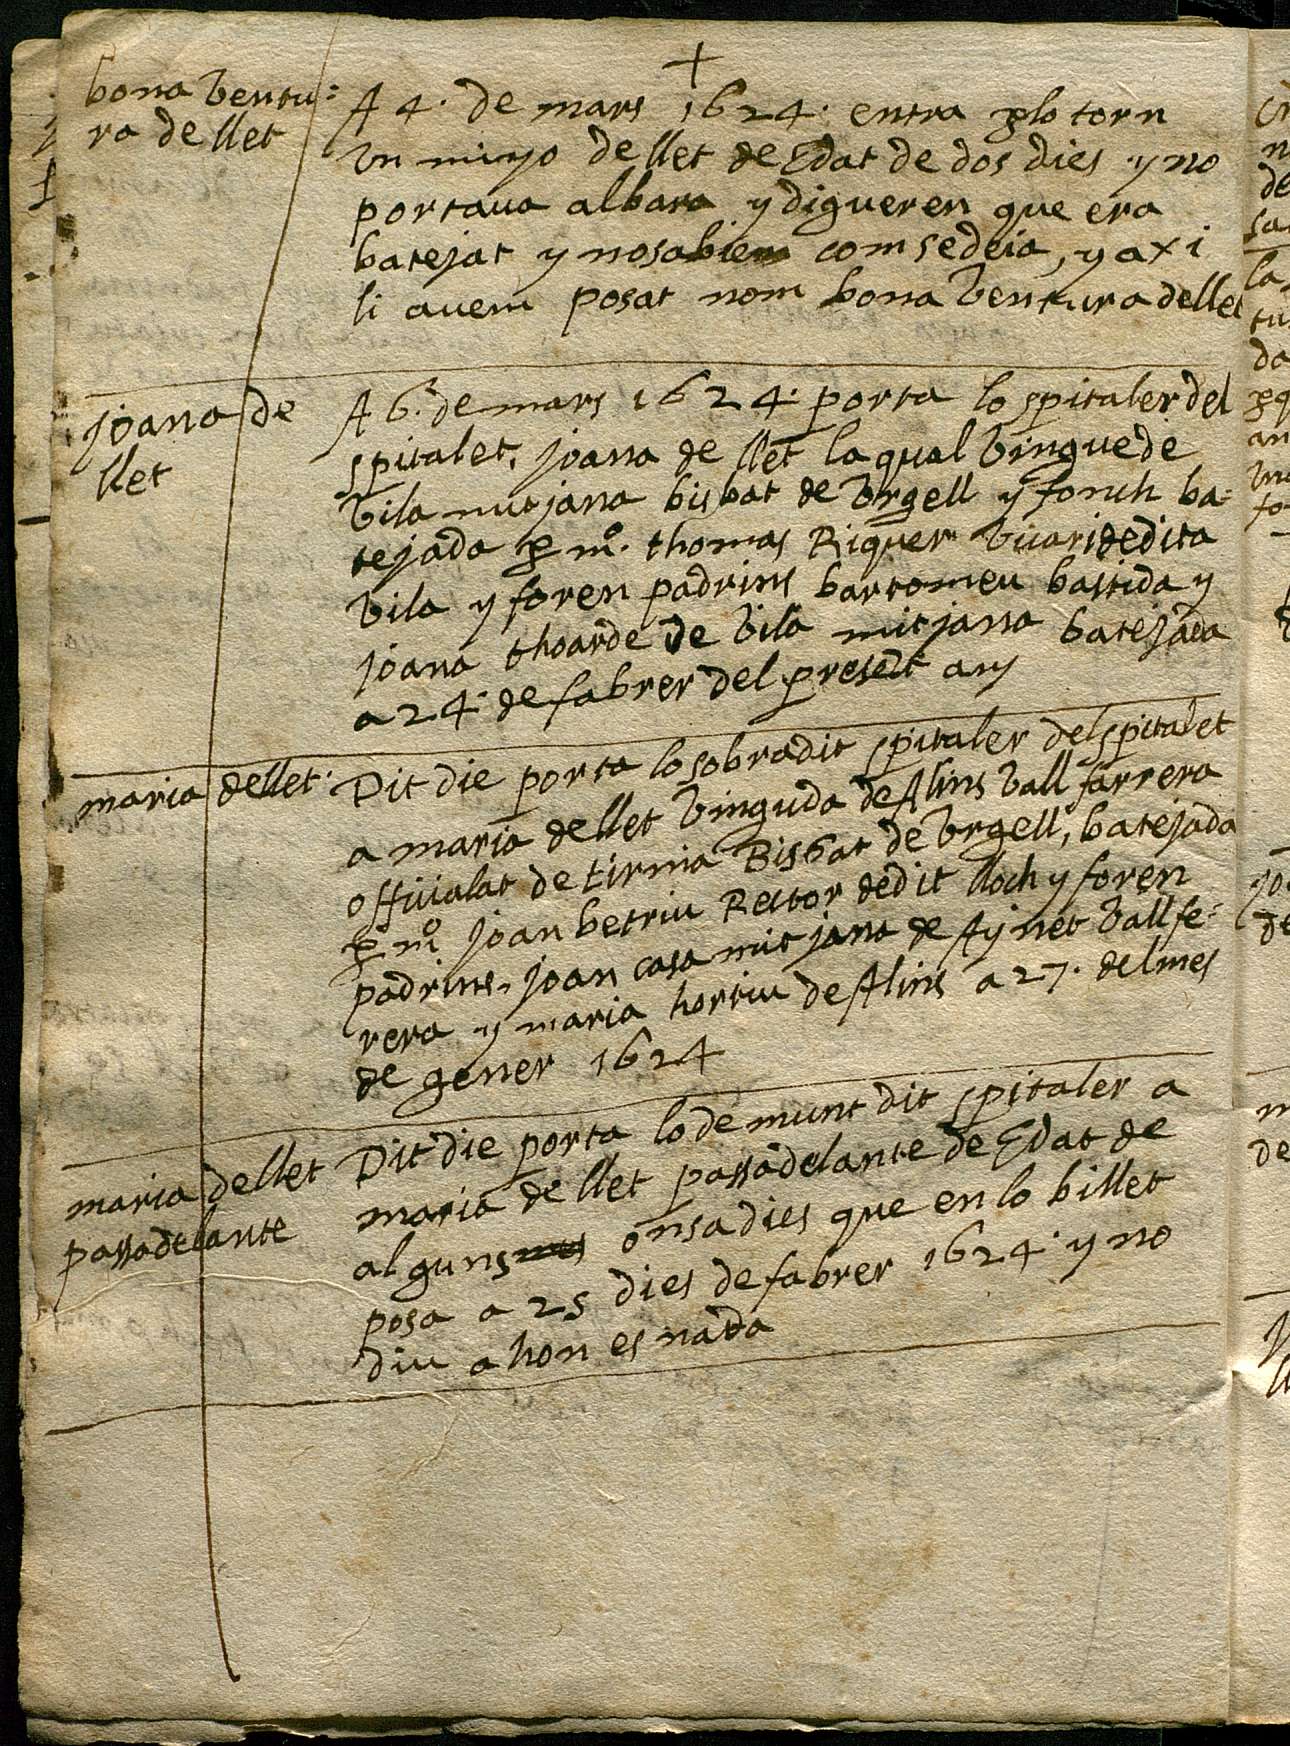 +
bona Ventu=
ra de llet
A 4. de mars 1624. entra plo torn
Vn minyo de llet de Edat de dos dies y no
portaua albara y digueren que era
batejat y no sabiem com se deia, y axi
li auem posat nom bona Ventura de llet
joana de
llet
A 6. de mars 1624. porta lo spitaler del
spitalet, joana de llet la qual Vingue de
Vila mitjana bisbat de Vrgell y fonch ba=
tejada p mº. thomas Riquer Vicari de dita
Vila y foren padrins bartomeu bastida y
joana thoarde de Vila mitjana batejada
a 24. de fabrer del present any
maria de llet.
Dit die porta lo sobradit spitaler del spitalet
a maria de llet Vinguda de Alins Vall farrera
officialat de tirvia Bisbat de Vrgell, batejada
p mº joan betriu Rector de dit lloch y foren
padrins, joan casa mitjana de Aynet Vall fe=
rera y maria hortiu de Alins a 27. del mes
de gener 1624
maria de llet
passadelante
Dit die porta lo de munt dit spitaler a
maria de llet passadelante de Edat de
alguns onsa dies que en lo billet
posa a 25 dies de fabrer 1624. y no
diu a hon es nada